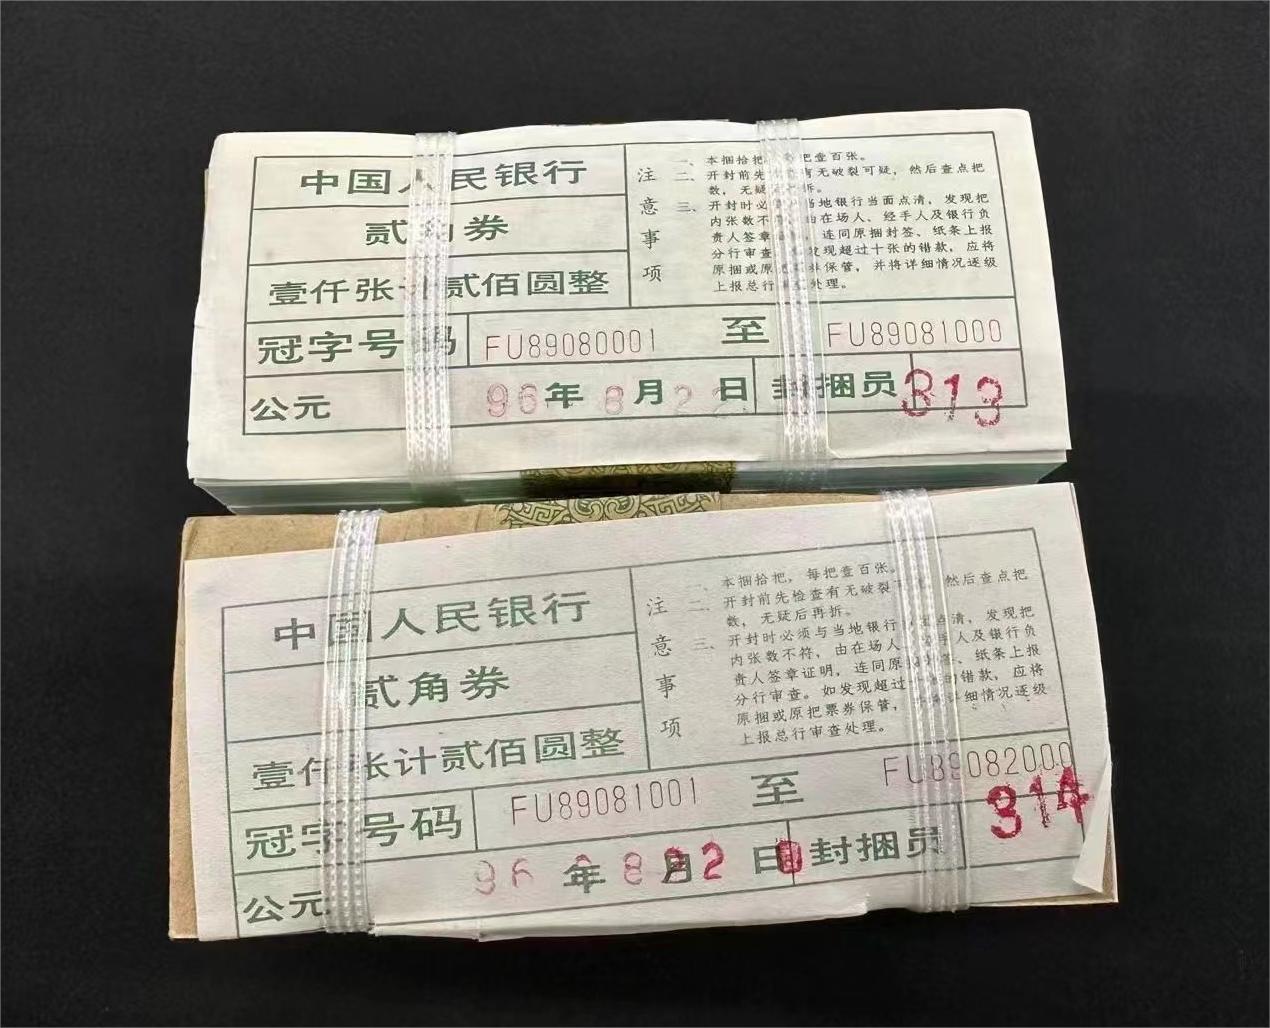 中国人民银行
贰角券
壹仟张计贰佰圆整
注意事项
一、本捆拾把，每把壹百张。
二、开封前先检查有无破裂可疑，然后查点把
数，无疑后再拆。
三、开封时必须与当地银行当面点清，发现把
内张数不符，由在场人、经手人及银行负
责人签章证明，连同原捆封签、纸条上报
分行审查。如发现超过十张的错款，应将
原捆或原把票券保管，并将详细情况逐级
上报总行审查处理。
冠字号码 FU89080001 至 FU89081000
公元 96年 8月22日 封捆员 313
中国人民银行
贰角券
壹仟张计贰佰圆整
注意事项
一、本捆拾把，每把壹百张。
二、开封前先检查有无破裂可疑，然后查点把
数，无疑后再拆。
三、开封时必须与当地银行当面点清，发现把
内张数不符，由在场人、经手人及银行负
责人签章证明，连同原捆封签、纸条上报
分行审查。如发现超过十张的错款，应将
原捆或原把票券保管，并将详细情况逐级
上报总行审查处理。
冠字号码 FU89081001 至 FU89082000
公元 96 年 8 月 2 日 封捆员 314